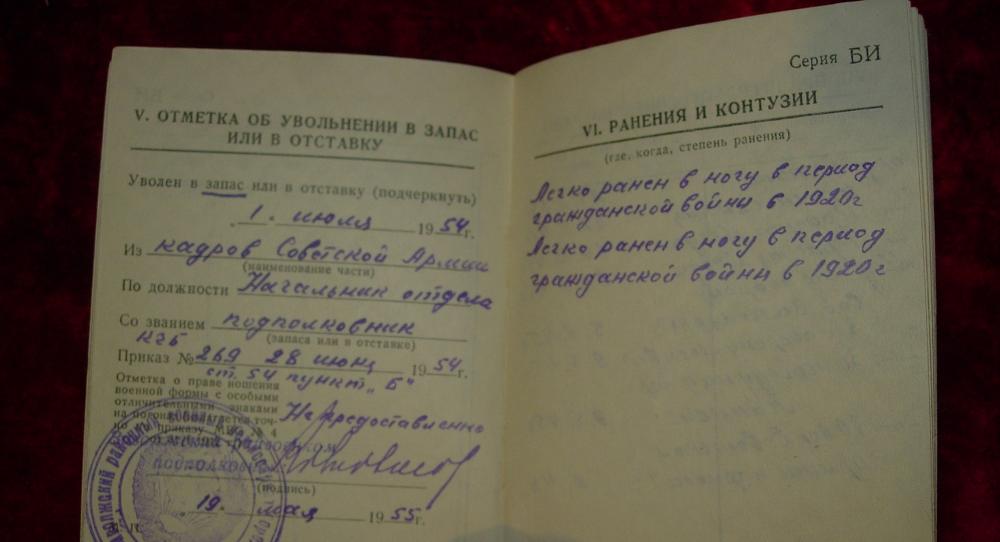 V. ОТМЕТКА ОБ УВОЛЬНЕНИИ В ЗАПАС
ИЛИ В ОТСТАВКУ
Уволен в запас или в отставку (подчеркнуть)
„1. июля 1954г.
Из кадров Советской Армии
(наименование части)
По должности Начальник отдела
Со званием подполковник
(запаса или в отставке)
КГБ
Приказ № 269 28 июня 1954г.
ст. 54 пункт „Б"
Отметка о праве ношения
военной формы с особыми
отличительными знаками
Не предоставлено
подполковник
(подпись)
19. мая 1955г.
Серия БИ
VI. РАНЕНИЯ И КОНТУЗИИ
(где, когда, степень ранения)
Легко ранен в ногу в период
гражданской войны в 1920г
Легко ранен в ногу в период
гражданской войны в 1920г